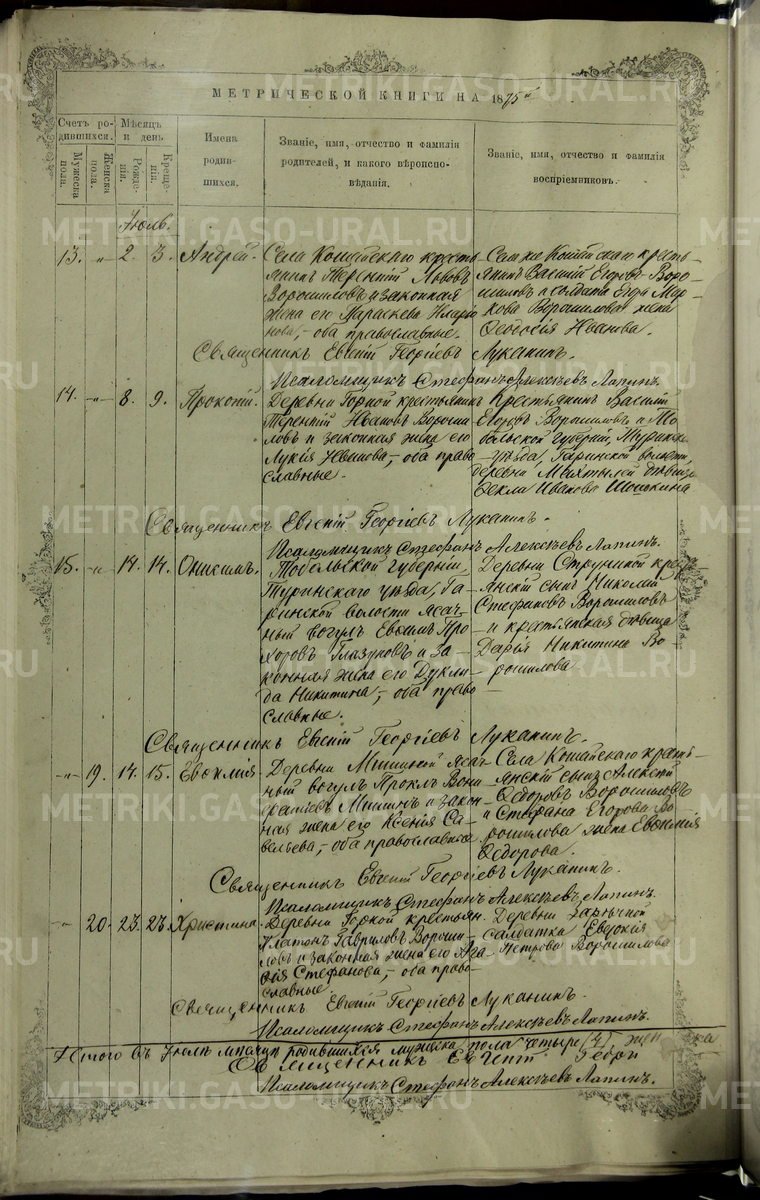 МЕТРИЧЕСКОЙ КНИГИ НА 1875 г
Счетъ родившихся.
Мужеска пола.
Женска пола.
Мѣсяцъ и день
Рожденія.
Крещенія.
Имена родившихся.
Званіе, имя, отчество и фамилія
родителей, и какого вѣроиспо-
вѣданія.
Званіе, имя, отчество и фамилія
воспріемниковъ.
Іюль.
13. „ 2. 3. Андрей.
Села Кошайскаго кресть
янинъ Терентій Львовъ
Ворошиловъ и законная
жена его Параскева Иларіо
нова, оба православные.
Села Кошайскаго кресть-
янинъ Василій Егоровъ Воро-
шиловъ и солдата Егора Мар-
кова Ворошилова жена
Ѳеодосія Иванова.
Священникъ Евгеній Георгіевъ Луканинъ.
Псаломщикъ Стефанъ Алексѣевъ Лапинъ.
14. „ 8. 9. Прокопій.
Деревни Горной крестьянинъ
Терентій Ивановъ Вороши
ловъ и законная жена его
Лукія Иванова, оба право
славные.
Крестьянинъ Василій
Егоровъ Ворошиловъ и То-
больской губерніи, Туринскаго
уѣзда, Гаринской волости,
деревни Махтылей дѣвица
Ѳекла Иванова Шошкина
Священникъ Евгеній Георгіевъ Луканинъ.
Псаломщикъ Стефанъ Алексѣевъ Лапинъ.
15. „ 14. 14. Онисимъ.
Тобольской губерніи,
Туринскаго уѣзда, Га-
ринской волости ясач-
ный вогулъ Евѳимъ Про
хоровъ Глазуновъ и за-
конная жена его Дукли
да Никитина, оба право
славные.
Деревни Струниной кресть-
янскій сынъ Николай
Стефановъ Ворошиловъ
и крестьянская дѣвица
Дарья Никитина Во-
рошилова
Священникъ Евгеній Георгіевъ Луканинъ.
„ 19. 14. 15. Евѳимія.
Деревни Мишиной ясач
ный вогулъ Проклъ
Мишинъ и закон-
ная жена его Ксенія Са-
вельева, оба православные.
Села Кошайскаго кресть-
янскій сынъ Алексѣй
Ѳедоровъ Ворошиловъ
и Стефана Егорова Во
рошилова жена Евѳимія
Ѳедорова.
Священникъ Евгеній Георгіевъ Луканинъ.
Псаломщикъ Стефанъ Алексѣевъ Лапинъ.
„ 20. 23. 23. Христина.
Деревни Горной крестьян.
Платонъ Гавриловъ Вороши-
ловъ и законная жена его Ага-
ѳія Стефанова, оба право-
славные
Деревни Заречной
солдатка Евдокія
Петрова Ворошилова
Священникъ Евгеній Георгіевъ Луканинъ.
Псаломщикъ Стефанъ Алексѣевъ Лапинъ.
Итого въ Іюлѣ мѣсяцѣ родившихся мужска пола четыре (4), женска
Священникъ Евгеній Геор
Псаломщикъ Стефанъ Алексѣевъ Лапинъ.
METRIKI.GASO-URAL.RU